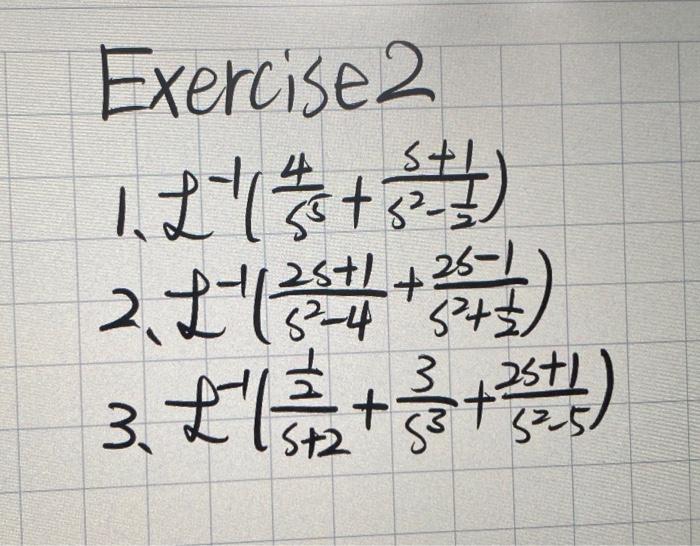 Exercise 2
1. ℒ⁻¹(4/s⁵ + (s+1)/(s² - 1/2))
2. ℒ⁻¹((2s+1)/(s²-4) + (2s-1)/(s² + 1/2))
3. ℒ⁻¹((1/2)/(s+2) + 3/s³ + (2s+1)/(s²-5))